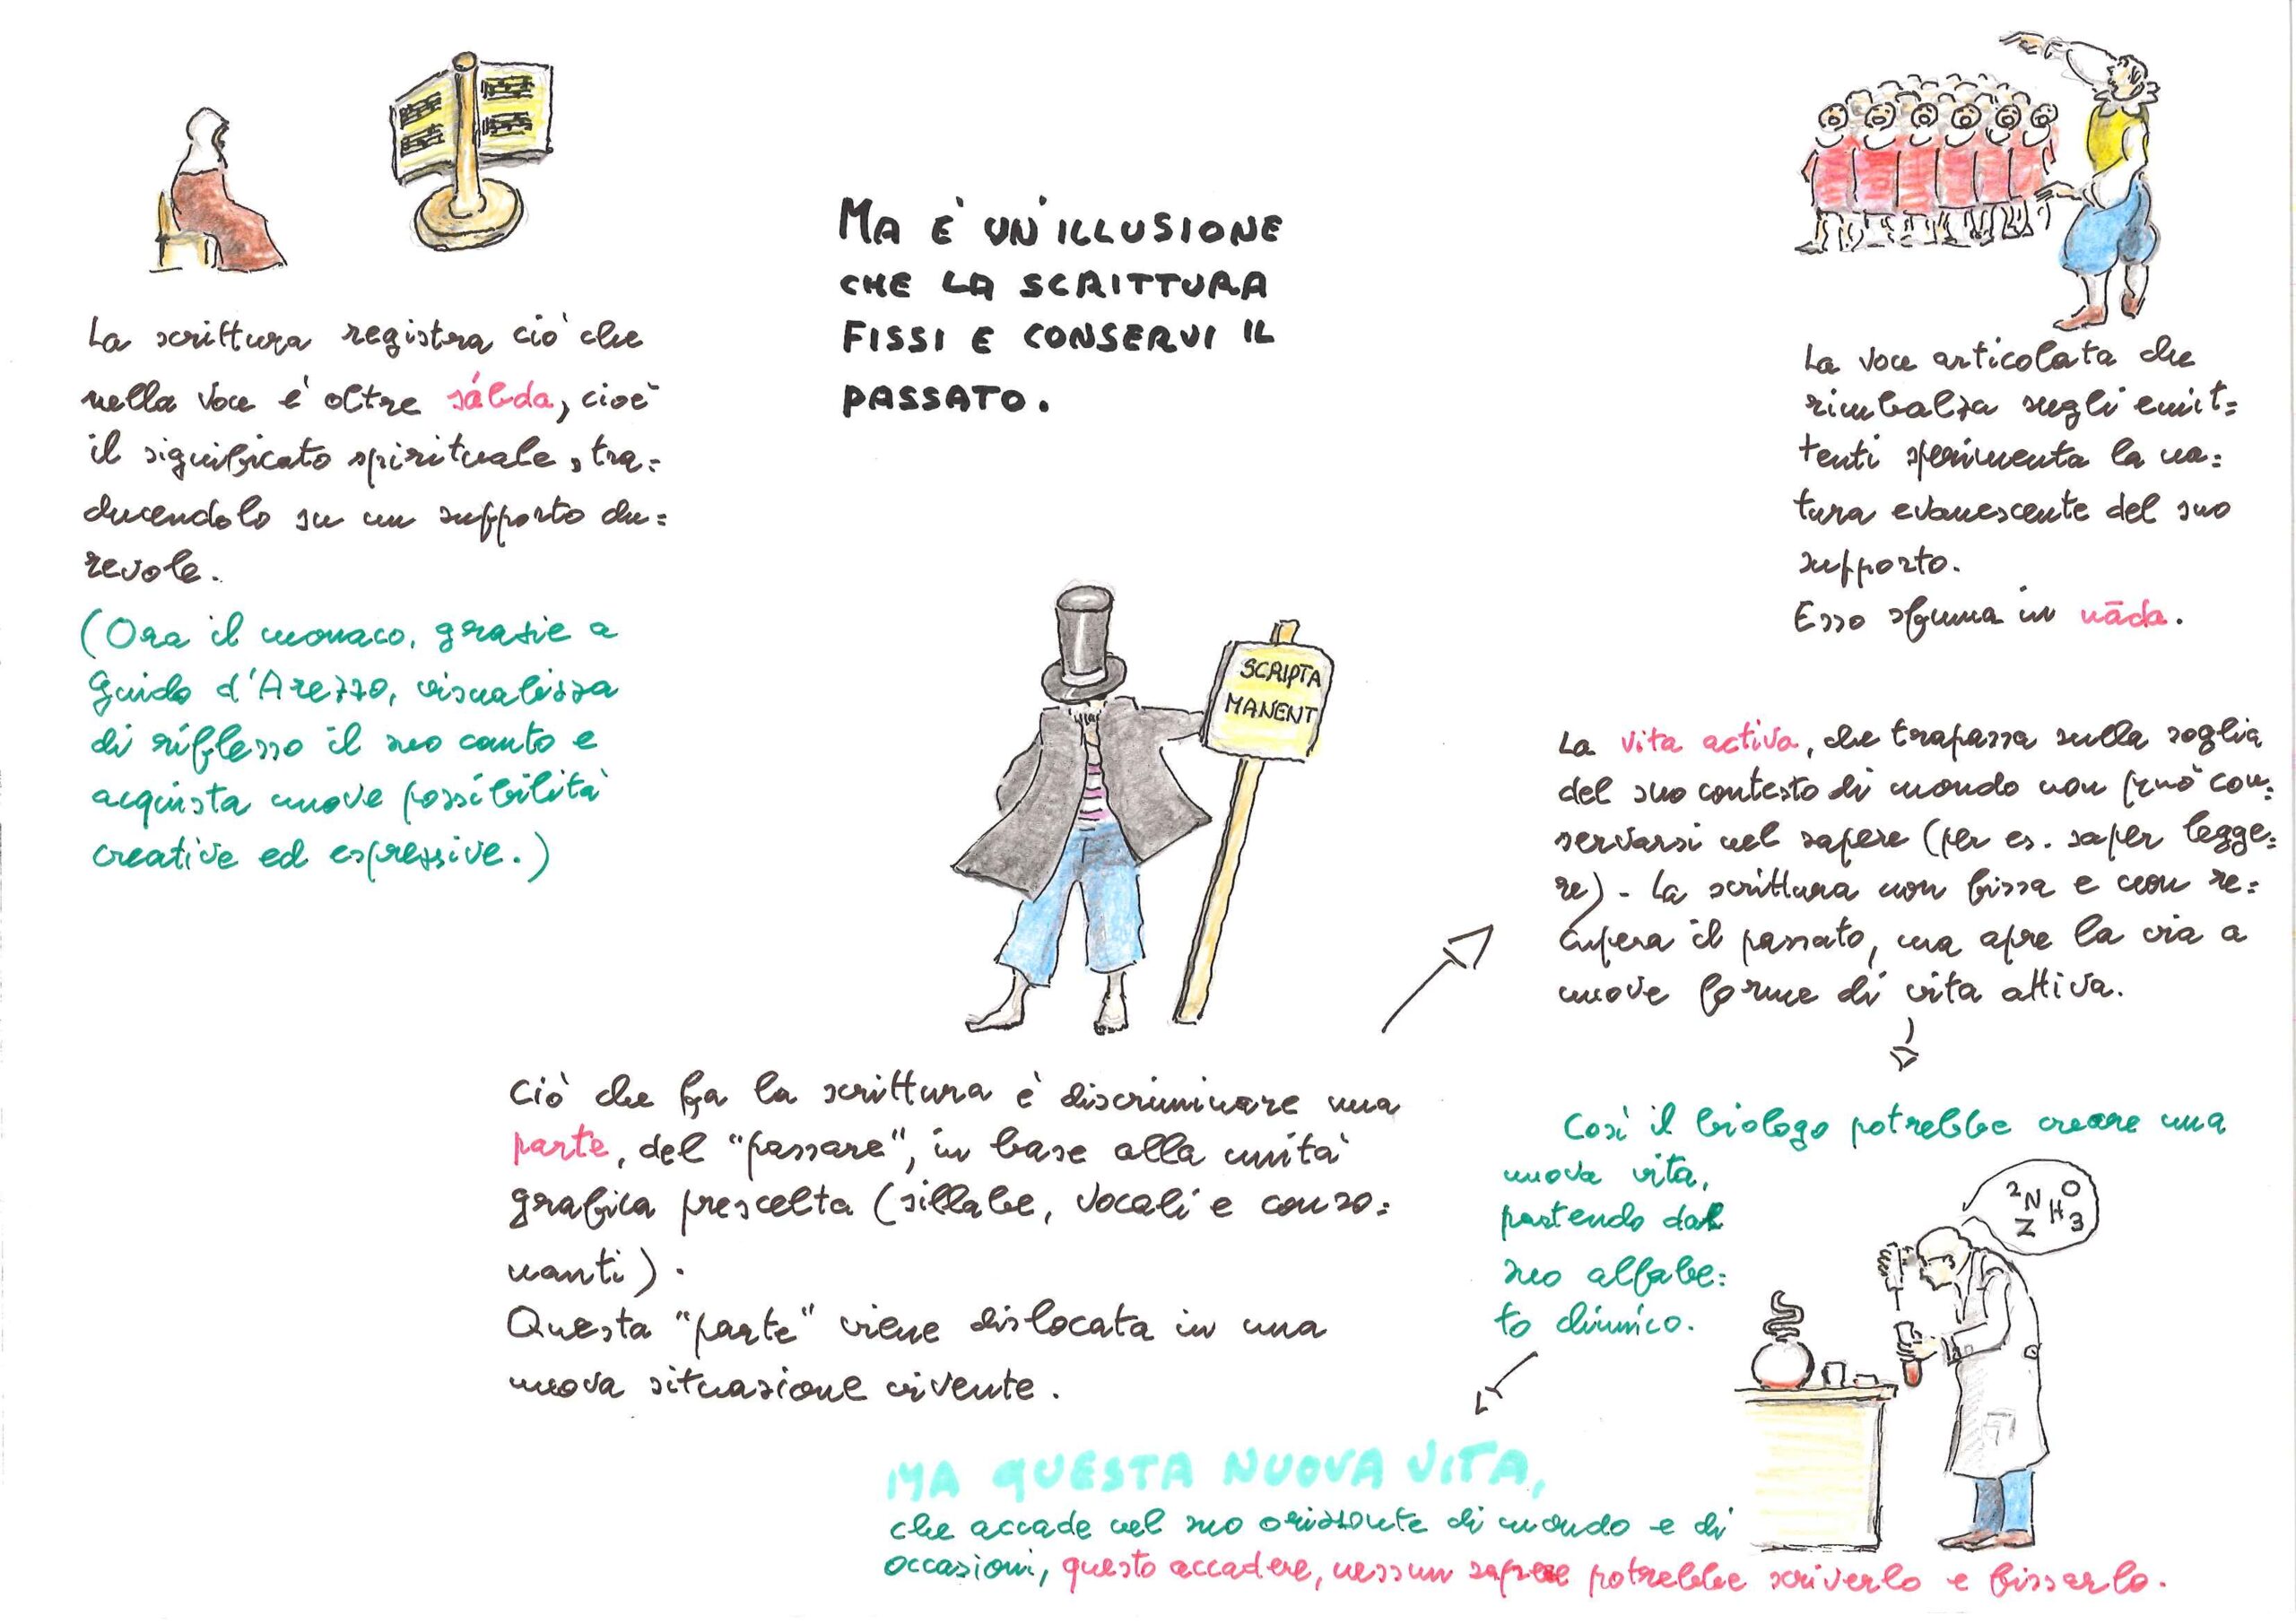 MA È UN'ILLUSIONE
CHE LA SCRITTURA
FISSI E CONSERVI IL
PASSATO.
La scrittura registra ciò che
nella voce è oltre sábda, cioè
il significato spirituale, tra=
ducendolo su un supporto du=
revole.
(Ora il monaco, grazie a
Guido d'Arezzo, visualizza
di riflesso il suo canto e
acquista nuove possibilità
creative ed espressive.)
La voce articolata che
rimbalza sugli emit=
tenti sperimenta la na=
tura evanescente del suo
supporto.
Esso sfuma in nāda.
SCRIPTA
MANENT
Ciò che fa la scrittura è discriminare una
parte, del "passare", in base alla unità
grafica prescelta (sillabe, vocali e conso=
nanti).
Questa "parte" viene dislocata in una
nuova situazione vivente.
La vita activa, che trapassa sulla soglia
del suo contesto di mondo non può con=
servarsi nel sapere (per es. saper legge=
re). La scrittura non fissa e non re=
cupera il passato, ma apre la via a
nuove forme di vita attiva.
Così il biologo potrebbe creare una
nuova vita,
partendo dal
suo alfabe=
to chimico.
2 N O
Z H 3
MA QUESTA NUOVA VITA,
che accade nel suo orizzonte di mondo e di
occasioni, questo accadere, nessun sapere potrebbe scriverlo e fissarlo.